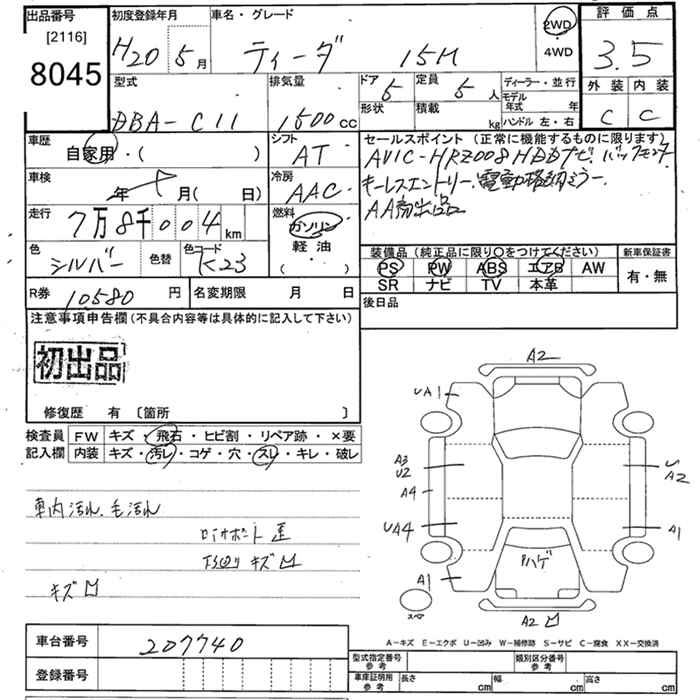 出品番号
[2116]
8045
初度登録年月
H20 5月
車名・グレード
ティーダ 15M
2WD
・
4WD
評価点
3.5
外装 内装
C C
型式
DBA-C11
排気量
1500cc
ドア 5
形状
定員 5人
積載 kg
ディーラー・並行
モデル年式 年
ハンドル 左・右
車歴
自家用・( )
シフト
AT
車検
年 月( 日)
冷房
AAC
走行
7万8千004km
燃料
ガソリン
軽油
・( )
色
シルバー
色替
色コード
K23
セールスポイント (正常に機能するものに限ります)
AVIC-HRZ008HDDナビ. バックモニター
キーレスエントリー. 電動格納ミラー
AA初出品
装備品 (純正品に限り○をつけてください)
新車保証書
PS PW ABS エアB AW
SR ナビ TV 本革
有・無
後日品
R券 10580円
名変期限 月 日
注意事項申告欄(不具合内容等は具体的に記入して下さい)
初出品
修復歴 有 〔箇所 〕
検査員記入欄
FW キズ・飛石・ヒビ割・リペア跡・×要
内装 キズ・汚レ・コゲ・穴・スレ・キレ・破レ
車内汚れ、毛汚れ
ロアサポート歪
下廻りキズ凹
キズ凹
A2
UA1
A3
U2
A4
UA4
A1
U
A2
A1
ハゲ
スペア
A2凹
A－キズ E－エクボ U－凹み W－補修跡 S－サビ C－腐食 XX－交換済
車台番号 207740
登録番号
型式指定番号
参考
類別区分番号
参考
車庫証明用
参考
長さ cm
幅 cm
高さ cm